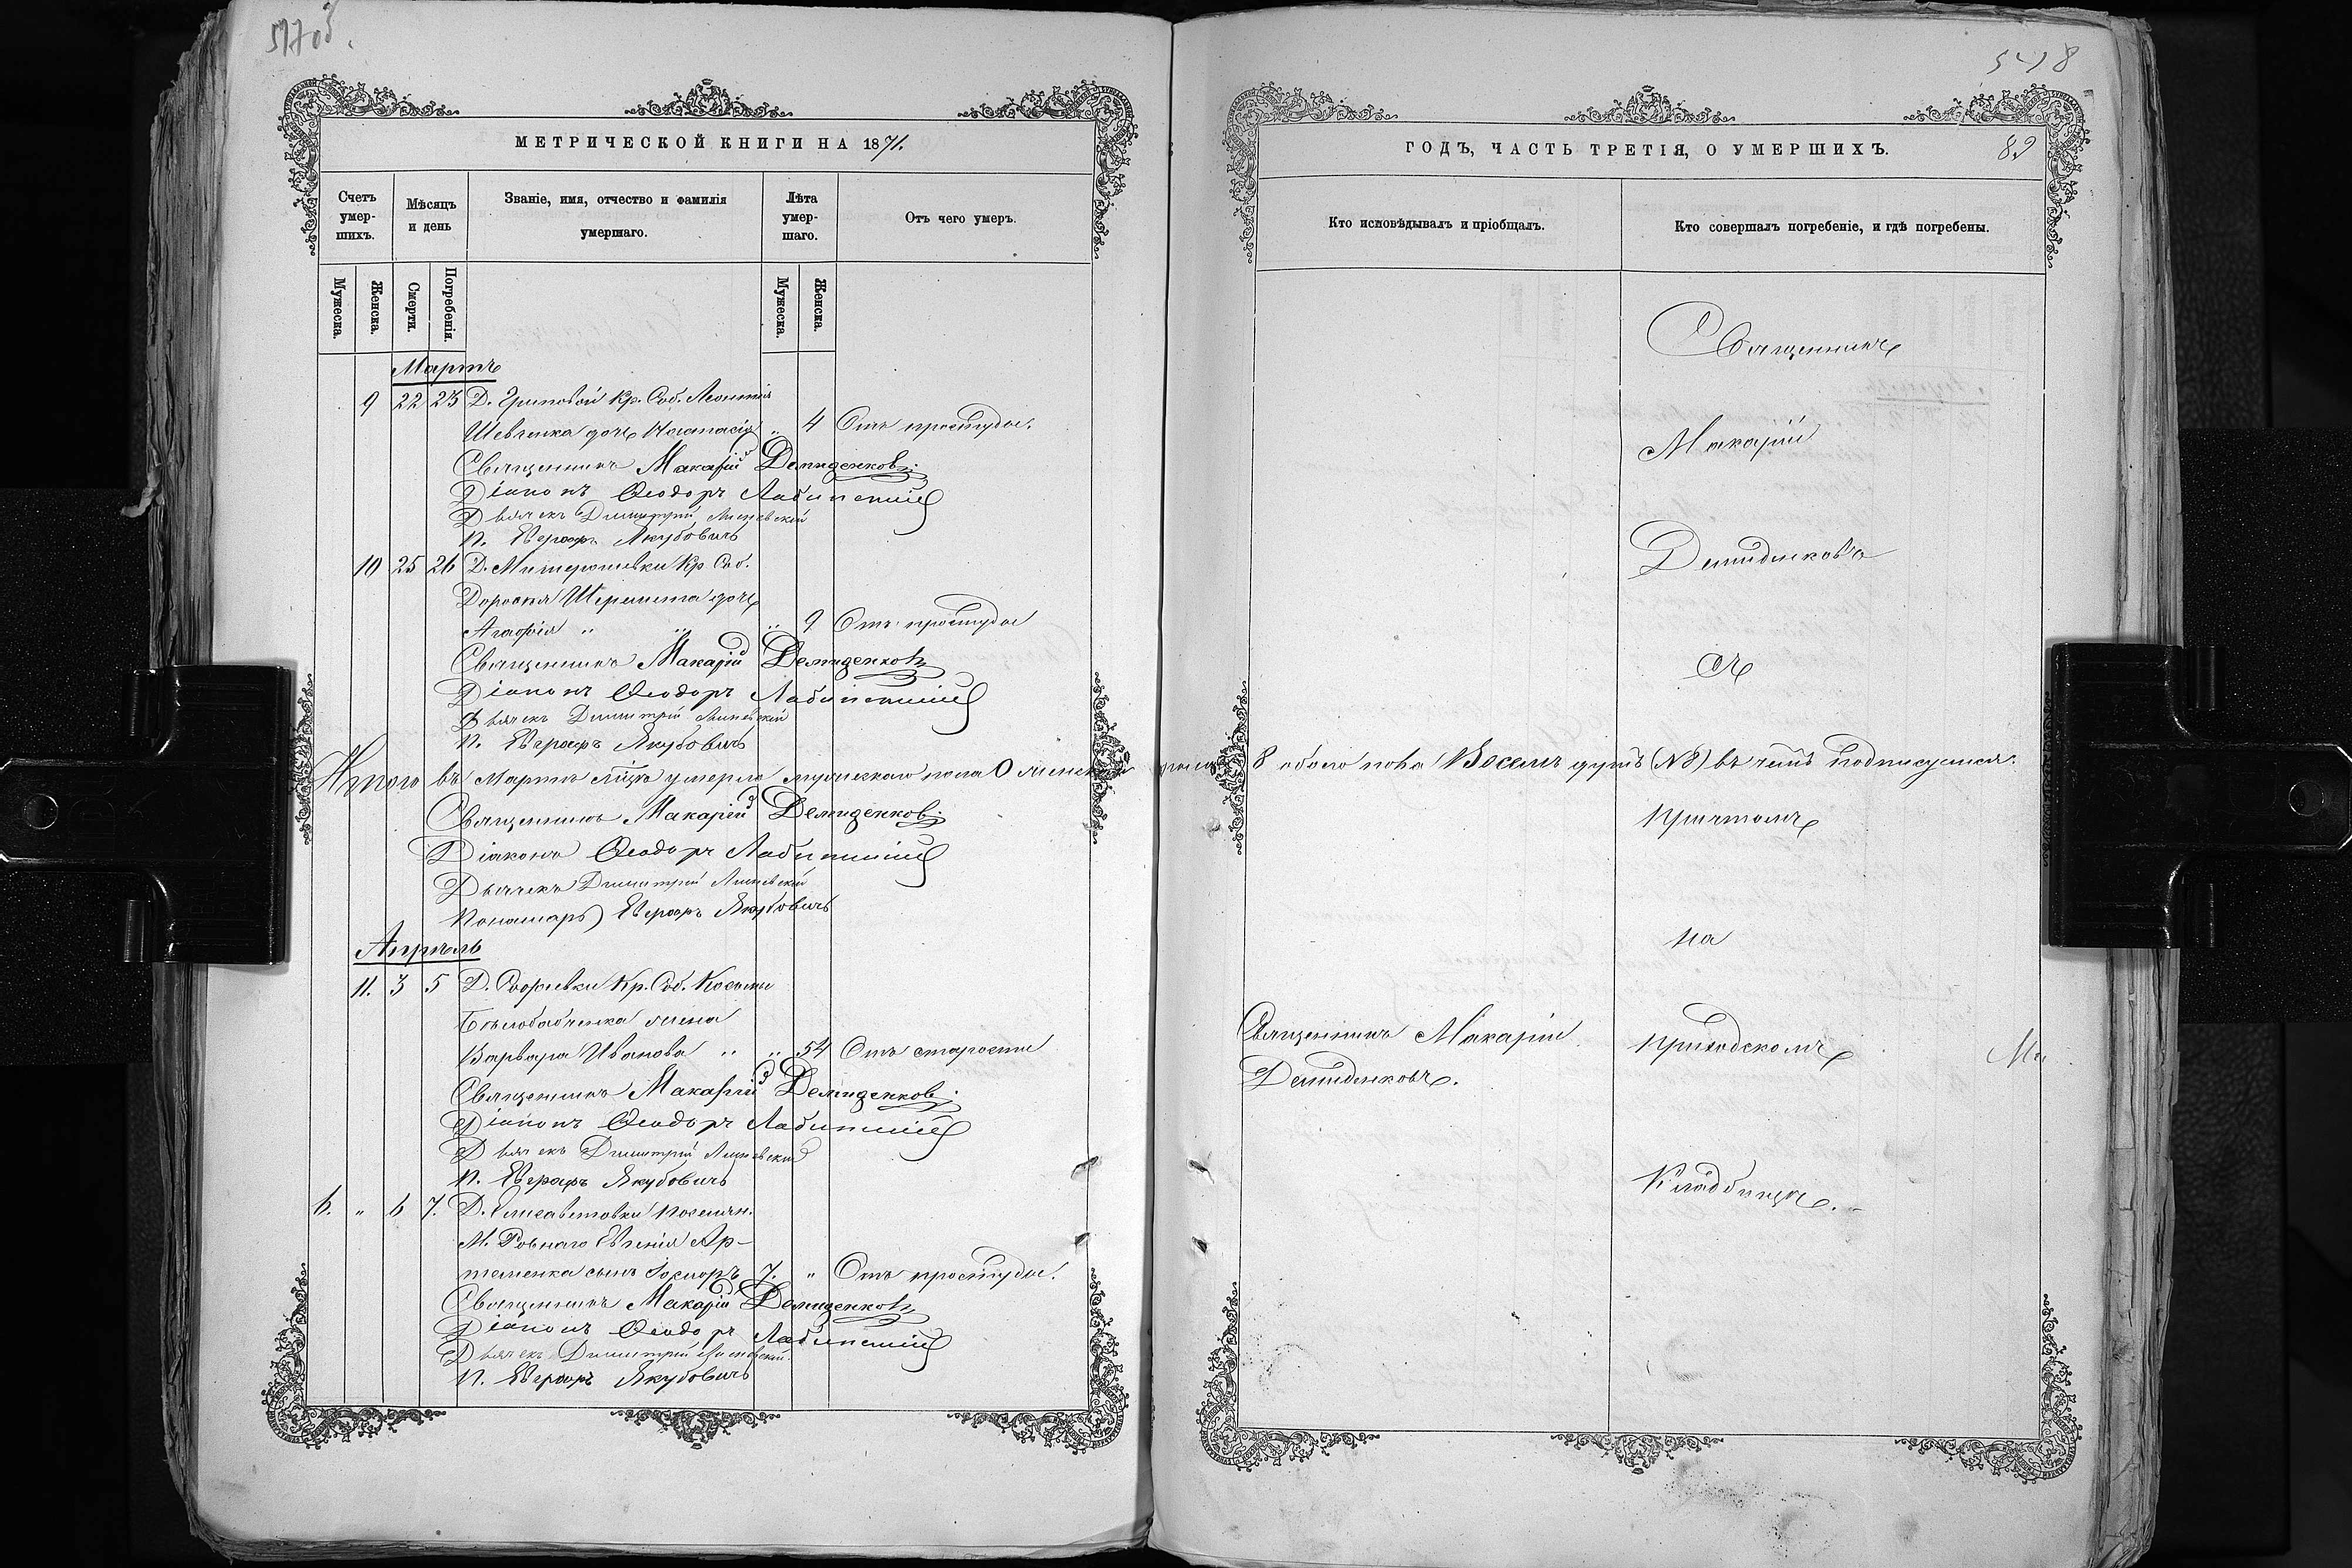 МЕТРИЧЕСКОЙ КНИГИ НА 1871.
Счетъ умер-шихъ.
Мѣсяцъ и день
Званіе, имя, отчество и фамилія умершаго.
Лѣта умер-шаго.
Отъ чего умеръ.
Мужеска.
Женска.
Смерти.
Погребенія.
Мужеска.
Женска.
Мартъ
9 22 23 Д. Кр. Соб. Леонтія
Шевченка дочь Анастасія „ 4 Отъ простуды.
Священникъ Макарій Демиденковъ
Діаконъ Ѳеодоръ
Дьячекъ Димитрій
П. Евграфъ Якубовичъ
10 25 26 Д. Кр. Соб.
Дороѳея Шеремета дочь
Агафія „ „ „ 9 Отъ простуды
Священникъ Макарій Демиденковъ
Діаконъ Ѳеодоръ
Дьячекъ Димитрій
П. Евграфъ Якубовичъ
Итого въ Мартѣ м҃цѣ умерло мужескаго пола 0 женскаго пола
Священникъ Макарій Демиденковъ
Діаконъ Ѳеодоръ
Дьячекъ Димитрій
Пономарь Евграфъ Якубовичъ
Апрѣль
11. 3 5 Д. Кр. Соб. Косьмы
Бѣлобабченка жена
Варвара Иванова „ „ 54 Отъ старости
Священникъ Макарій Демиденковъ
Діаконъ Ѳеодоръ
Дьячекъ Димитрій
П. Евграфъ Якубовичъ
6. „ 6 7. Д. Елисаветовки поселян.
М. Ровнаго Евгенія Ар-
теменка сынъ 7. „ Отъ простуды.
Священникъ Макарій Демиденковъ
Діаконъ Ѳеодоръ
Дьячекъ Димитрій
П. Евграфъ Якубовичъ
ГОДЪ, ЧАСТЬ ТРЕТІЯ, О УМЕРШИХЪ.
89
Кто исповѣдывалъ и пріобщалъ.
Кто совершалъ погребеніе, и гдѣ погребены.
Священникъ
Макарій
Демиденковъ
съ
8 обоего пола Восемь душъ (№8) въ чемъ подписуемся.
причтомъ
на
Священникъ Макарій
Демиденковъ.
приходскомъ
Кладбищѣ.